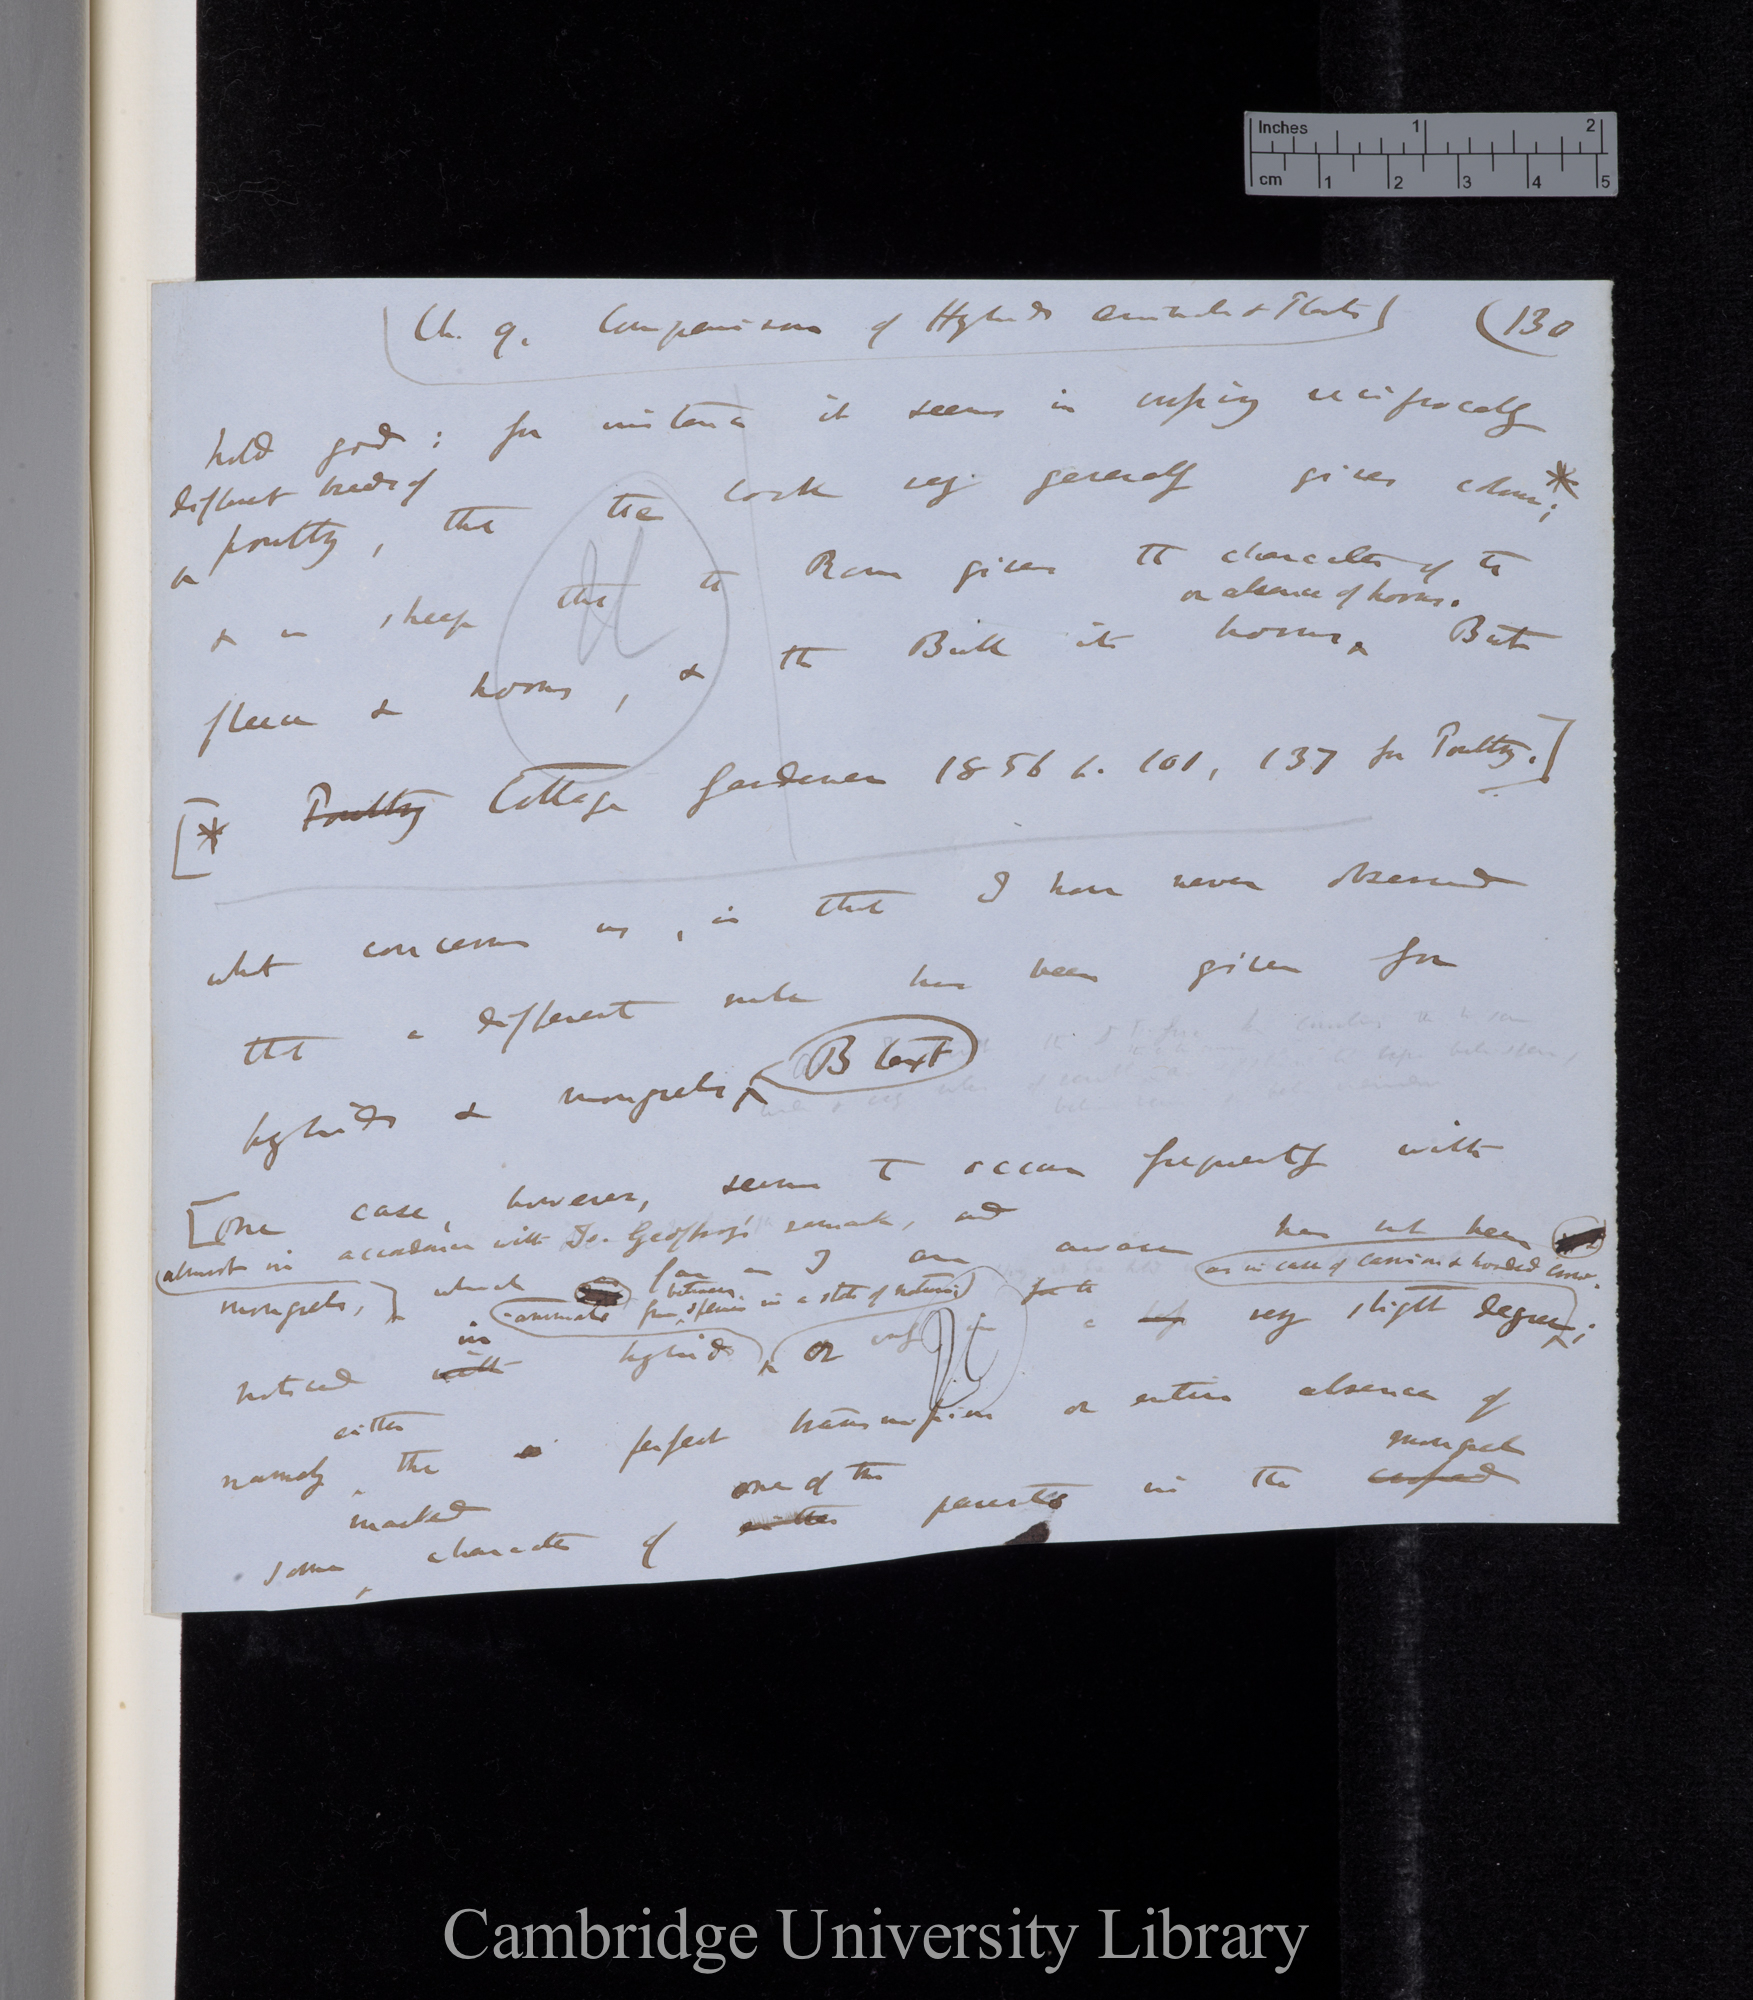 Inches 1 2
cm 1 2 3 4 5
Ch. 9. Comparison of Hybrids animals & Plants (130
hold good: for instance it seems in crossing reciprocally
different breeds of
poultry, that the cock very generally gives colour;*
& in sheep that the Ram gives the character of the
or absence of horns.
fleece & horns, & the Bull its horns. But
[* Poultry Cottage Gardener 1856 p. 101, 137 for Poultry.]
what concerns us, is that I have never observed
that a different rule has been given for
hybrids & mongrels B text
[One case, however, seems to occur frequently with
almost in accordance with Is. Geoffroy's remark, and
mongrels,] which far as I am aware has not been
as in case of carrion & hooded crow.
between
animals from species in a state of nature
in
noticed with hybrids, or only in a very slight degree;
either
namely the perfect transmission or entire absence of
marked one of the mongrel
some character of either parents in the crossed
Cambridge University Library